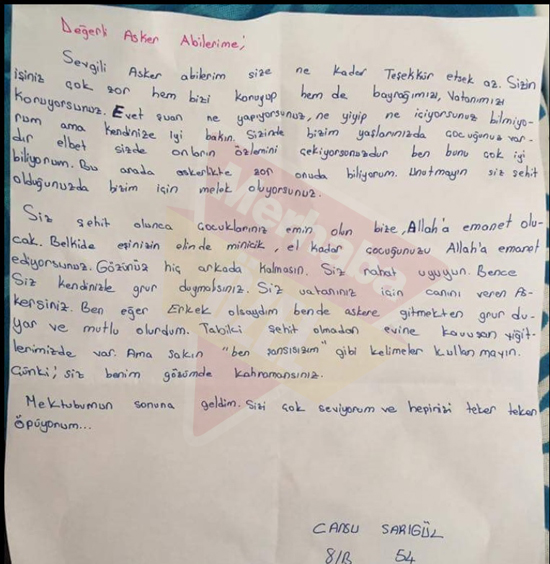 Değerli Asker Abilerime;
Sevgili Asker abilerim size ne kadar Teşekkür etsek az. Sizin
işiniz çok zor hem bizi koruyup hem de bayrağımızı, Vatanımızı
Koruyorsunuz. Evet şuan ne yapıyorsunuz, ne yiyip ne içiyorsunuz bilmiyo-
rum ama kendinize iyi bakın. Sizinde bizim yaşlarımızda çocuğunuz var-
dır elbet sizde onların özlemini çekiyorsunuzdur ben bunu çok iyi
biliyorum. Bu arada askerlikte zor onuda biliyorum. Unutmayın siz şehit
olduğunuzda bizim için melek oluyorsunuz.
Siz şehit olunca çocuklarınız emin olun bize, Allah'a emanet olu-
cak. Belkide eşinizin elinde minicik, el kadar çocuğunuzu Allah'a emanet
ediyorsunuz. Gözünüz hiç arkada kalmasın. Siz rahat uyuyun. Bence
Siz kendinizle grur duymalısınız. Siz vatanınız için canını veren As-
kersiniz. Ben eğer Erkek olsaydım bende askere gitmekten grur du-
yar ve mutlu olurdum. Tabikci şehit olmadan evine kavuşan yiğit-
lerimizde var. Ama sakın "ben şanssızım" gibi kelimeler kullanmayın.
Çünki; siz benim gözümde kahramansınız.
Mektubumun sonuna geldim. Sizi çok seviyorum ve hepinizi teker teker
öpüyorum...
CANSU SARIGÜL
8/B 54
Merhaba